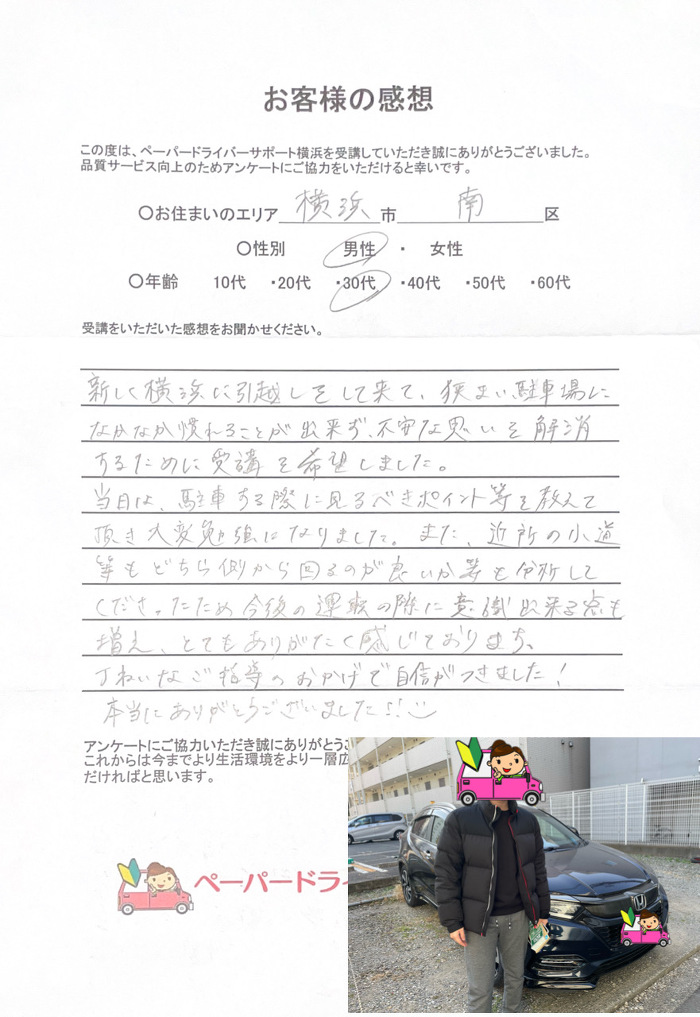 お客様の感想
この度は、ペーパードライバーサポート横浜を受講していただき誠にありがとうございました。
品質サービス向上のためアンケートにご協力をいただけると幸いです。
〇お住まいのエリア 横浜 市 南 区
〇性別 男性 ・ 女性
〇年齢 10代 ・20代 ・30代 ・40代 ・50代 ・60代
受講をいただいた感想をお聞かせください。
新しく横浜に引越しをして来て、狭い駐車場に
なかなか慣れることが出来ず、不安な思いを解消
するために受講を希望しました。
当日は、駐車する際に見るべきポイント等を教えて
頂き大変勉強になりました。また、近所の小道
等もどちら側から回るのが良いか等も分析して
くださったため今後の運転の際に意識出来る点も
増え、とてもありがたく感じております。
丁ねいなご指導のおかげで自信がつきました!
本当にありがとうございました!!
アンケートにご協力いただき誠にありがとうご
これからは今までより生活環境をより一層広
だければと思います。
ペーパードライ